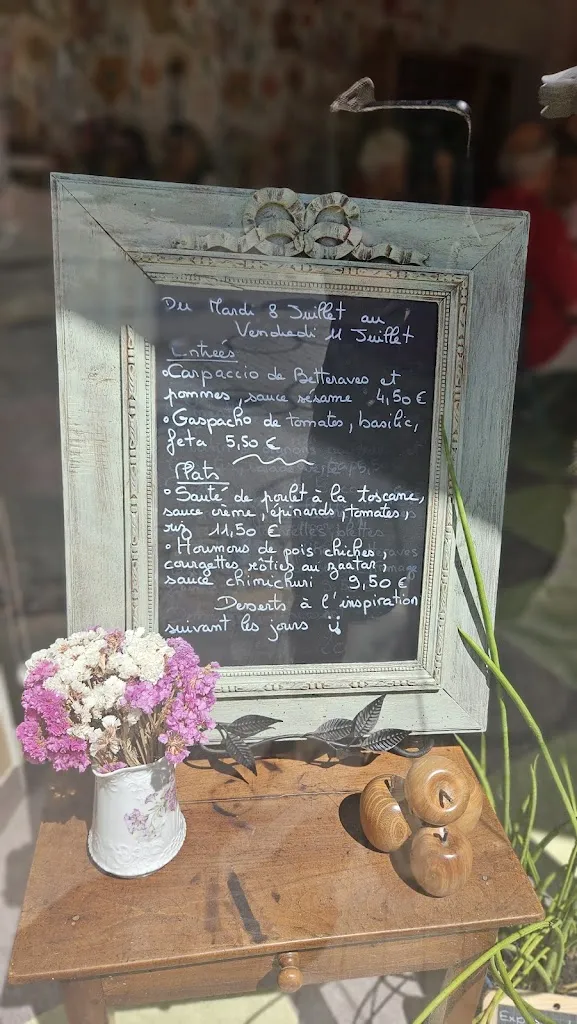 Du Mardi 8 Juillet au
Vendredi 11 Juillet
Entrées
• Carpaccio de Betteraves et
pommes, sauce sésame 4,50 €
• Gaspacho de tomates, basilic,
feta 5,50 €
Plats
• Sauté de poulet à la toscane,
sauce crème, épinards, tomates,
riz 11,50 €
• Houmous de pois chiches,
courgettes rôties au zaatar
sauce chimichuri 9,50 €
Desserts à l'inspiration
suivant les jours